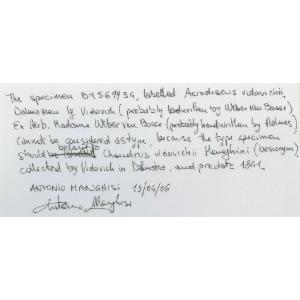 The specimen BM569939, labelled Acrodiscus vidovichii
Dalmatien lg. Vidovich (probably handwritten by Weber van Bosse)
Ex Herb. Madame Weber van Bosse (probably handwritten by Holmes)
cannot be considered as type, because the type specimen
should be labelled Chondrus vidovichii Meneghini (basionym)
collected by Vidovich in Dalmatia, and predate 1841.
ANTONIO MANGHISI 15/09/06
Antonio Manghisi